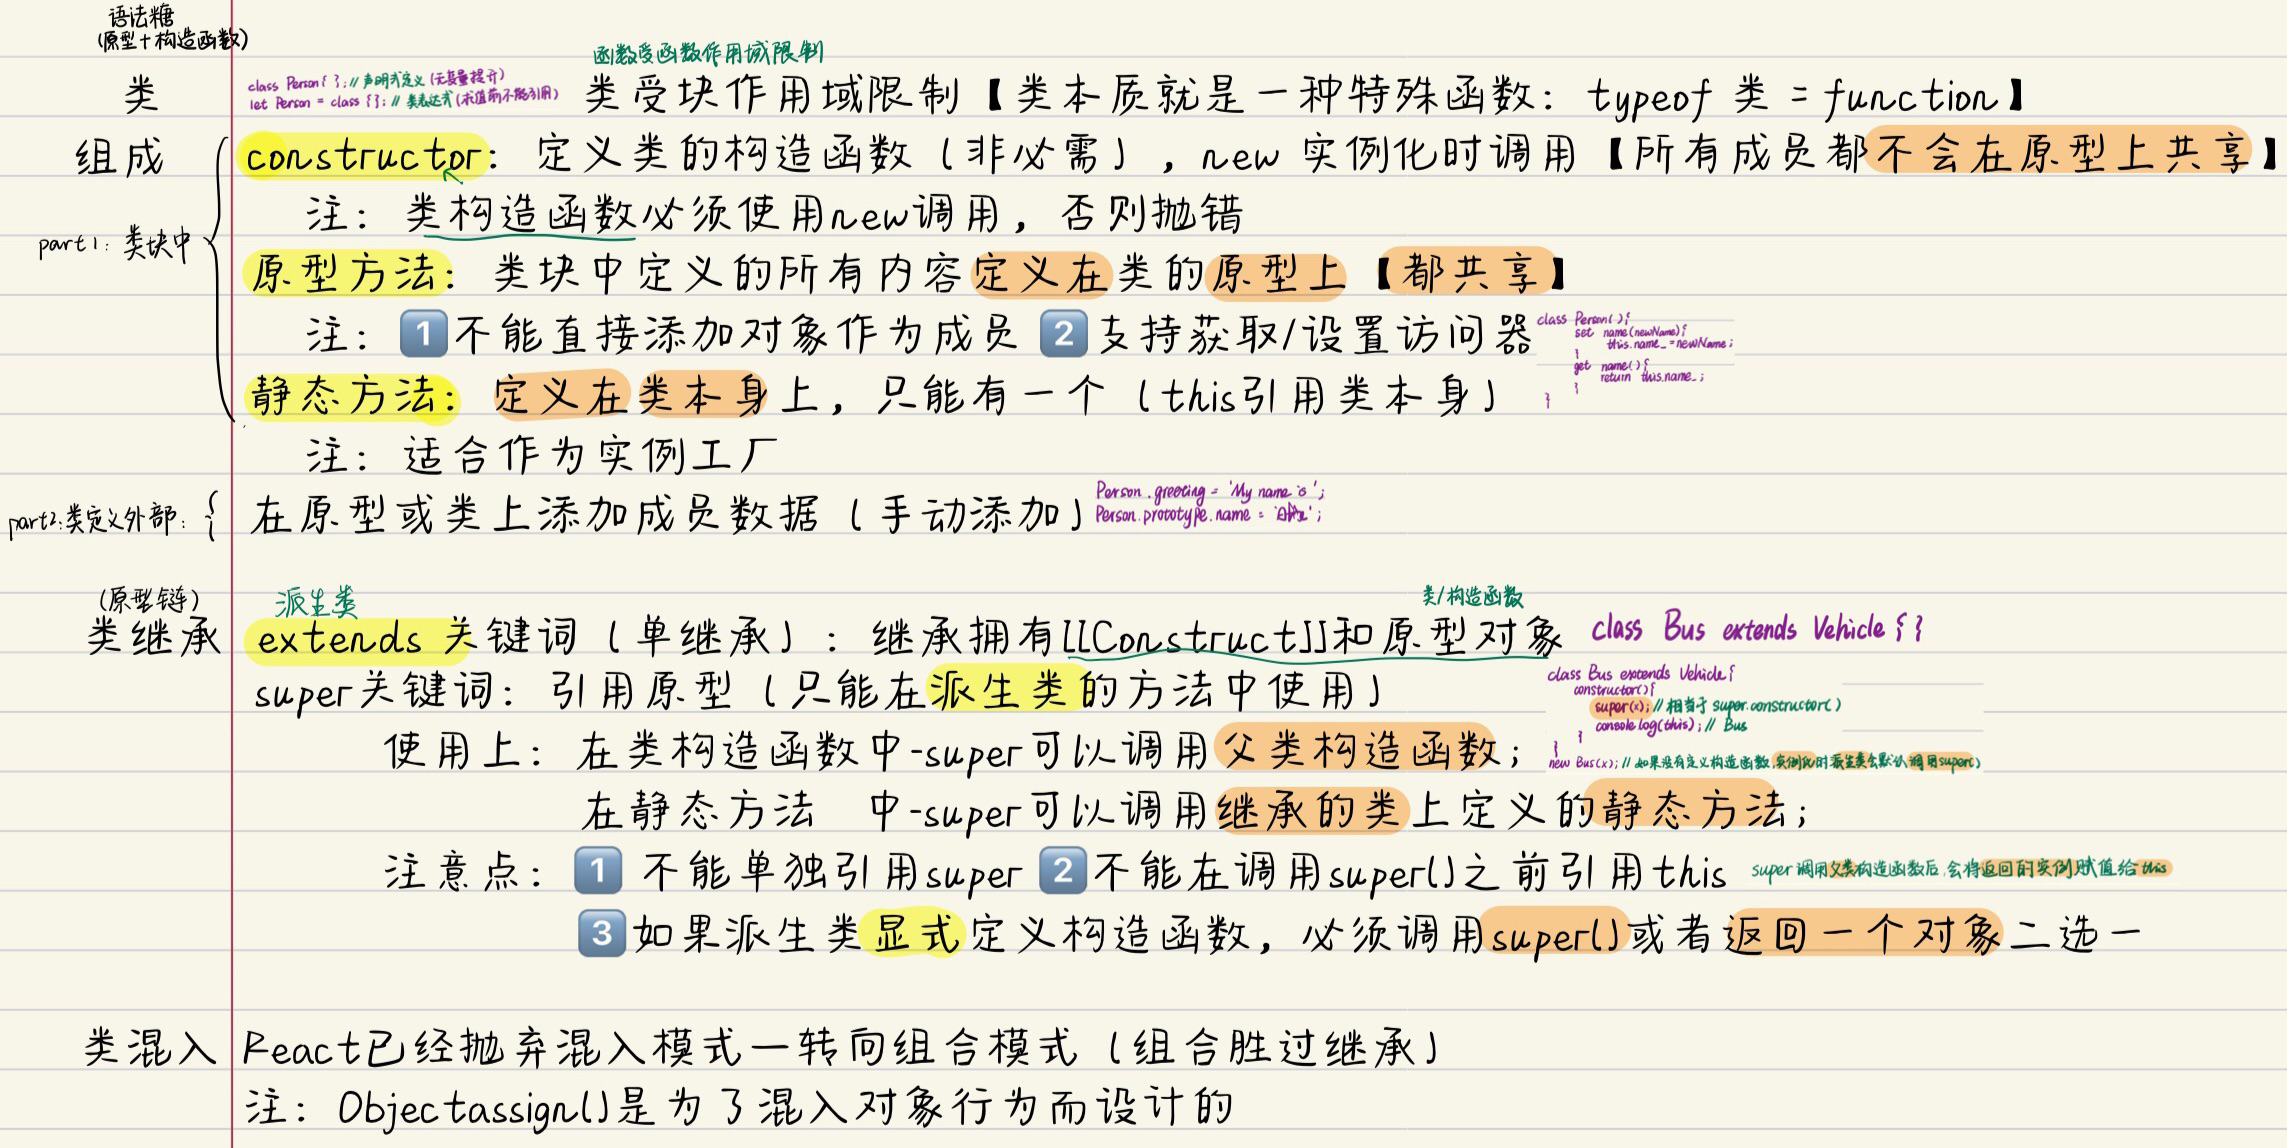 语法糖
(原型+构造函数)
函数受函数作用域限制
类
class Person{ }; // 声明式定义 (无变量提升)
let Person = class { }; // 类表达式 (求值前不能引用)
类受块作用域限制【类本质就是一种特殊函数: typeof 类 = function】
组成
constructor: 定义类的构造函数(非必需), new 实例化时调用【所有成员都不会在原型上共享】
注: 类构造函数必须使用new调用, 否则抛错
part1: 类块中
原型方法: 类块中定义的所有内容定义在类的原型上【都共享】
注: 1 不能直接添加对象作为成员 2 支持获取/设置访问器
class Person( ){
set name(newName){
this.name_ = newName;
}
get name( ){
return this.name_;
}
}
静态方法: 定义在类本身上, 只能有一个(this引用类本身)
注: 适合作为实例工厂
part2: 类定义外部:
在原型或类上添加成员数据(手动添加)
Person.greeting = 'My name is';
Person.prototype.name =
(原型链)
派生类
类/构造函数
类继承
extends 关键词(单继承): 继承拥有[[Construct]]和原型对象
class Bus extends Vehicle { }
super关键词: 引用原型(只能在派生类的方法中使用)
class Bus extends Vehicle{
constructor( ){
super(x); // 相当于 super.constructor( )
console.log(this); // Bus
}
}
new Bus(x); // 如果没有定义构造函数,实例化时派生类会默认调用super()
使用上: 在类构造函数中-super可以调用父类构造函数;
在静态方法 中-super可以调用继承的类上定义的静态方法;
注意点: 1 不能单独引用super 2 不能在调用super()之前引用this
super调用父类构造函数后,会将返回的实例赋值给this
3 如果派生类显式定义构造函数, 必须调用super()或者返回一个对象二选一
类混入
React已经抛弃混入模式一转向组合模式(组合胜过继承)
注: Objectassign()是为了混入对象行为而设计的